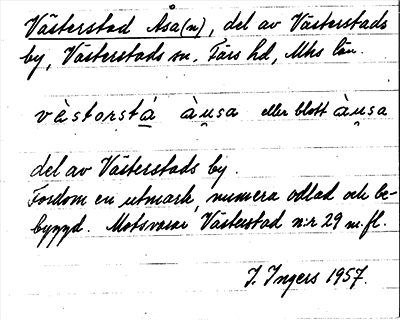 Västerstad Åsa(n), del av Västerstads
by, Västerstads sn. Färs hd, Mhs län.
vàstorstá̲ àu̯sa eller blott àu̯sa
del av Västerstads by.
Fordom en utmark, numera odlad och be-
byggd. Motsvarar Västerstad n:r 29 m.fl.
I. Ingers 1957.